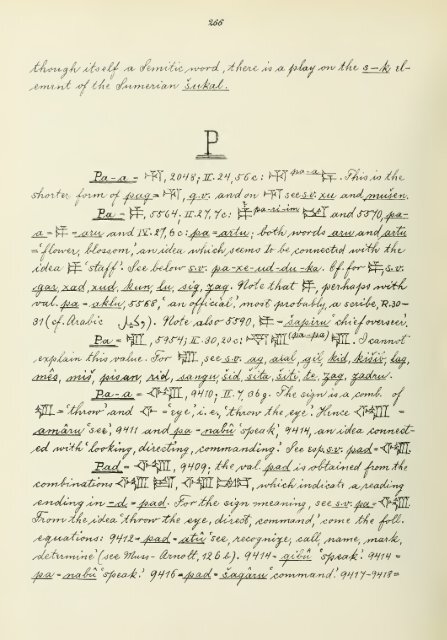 266
though itself a Semitic word, there is a play on the s-k el-
ement of the Sumerian šukal.
P
Pa-a = 2048; II. 24, 56 c: pa-a. This is the
shorter form of pag = , q.v. and on see s.v. xu and mušen.
Pa = , 5564, II. 27, 7c: pa-ri-im and 5570, pa-
a = = aru and IV. 27, 6c: pa = artu; both words aru and artu
= 'flower, blossom,' an idea which seems to be connected with the
idea 'staff.' See below s.v. pa-xe-ud-du-ka. Cf. for , s.v.
gas, xad, xud, kun, lu, sig, zag. Note that , perhaps with
val. pa = aklu, 5568, 'an official,' most probably, a scribe, R. 30-
31 (cf. Arabic ). Note also 5590, = šapiru 'chief overseer.'
Pa = , 5954; II. 30, 20c: (pa-pa) . I cannot
explain this value. For , see s.v. ag, alal, gil, kid, kišiv, lag,
mês, miš, pisan, rid, sangu, šid, šita, šiti, te, zag, zadru.
Pa-a = , 9410; II. 7, 36 g. The sign is a comb. of
= 'throw' and = 'eye,' i.e., 'throw the eye.' Hence =
amâru 'see,' 9411 and pa = nabû 'speak,' 9414, an idea connect-
ed with 'looking, directing, commanding.' See esp. s.v. pad = .
Pad = , 9409; the val. pad is obtained from the
combinations , , which indicate a reading
ending in -d = pad. For the sign meaning, see s.v. pa =
From the idea 'throw the eye, direct, command,' come the foll.
equations: 9412 = pad = atû 'see, recognize, call, name, mark,
determine' (see Muss-Arnolt, 126 b). 9414 = qibû 'speak.' 9414 =
pa = nabû 'speak.' 9416 = pad = šagâru 'command.' 9417-9418 =